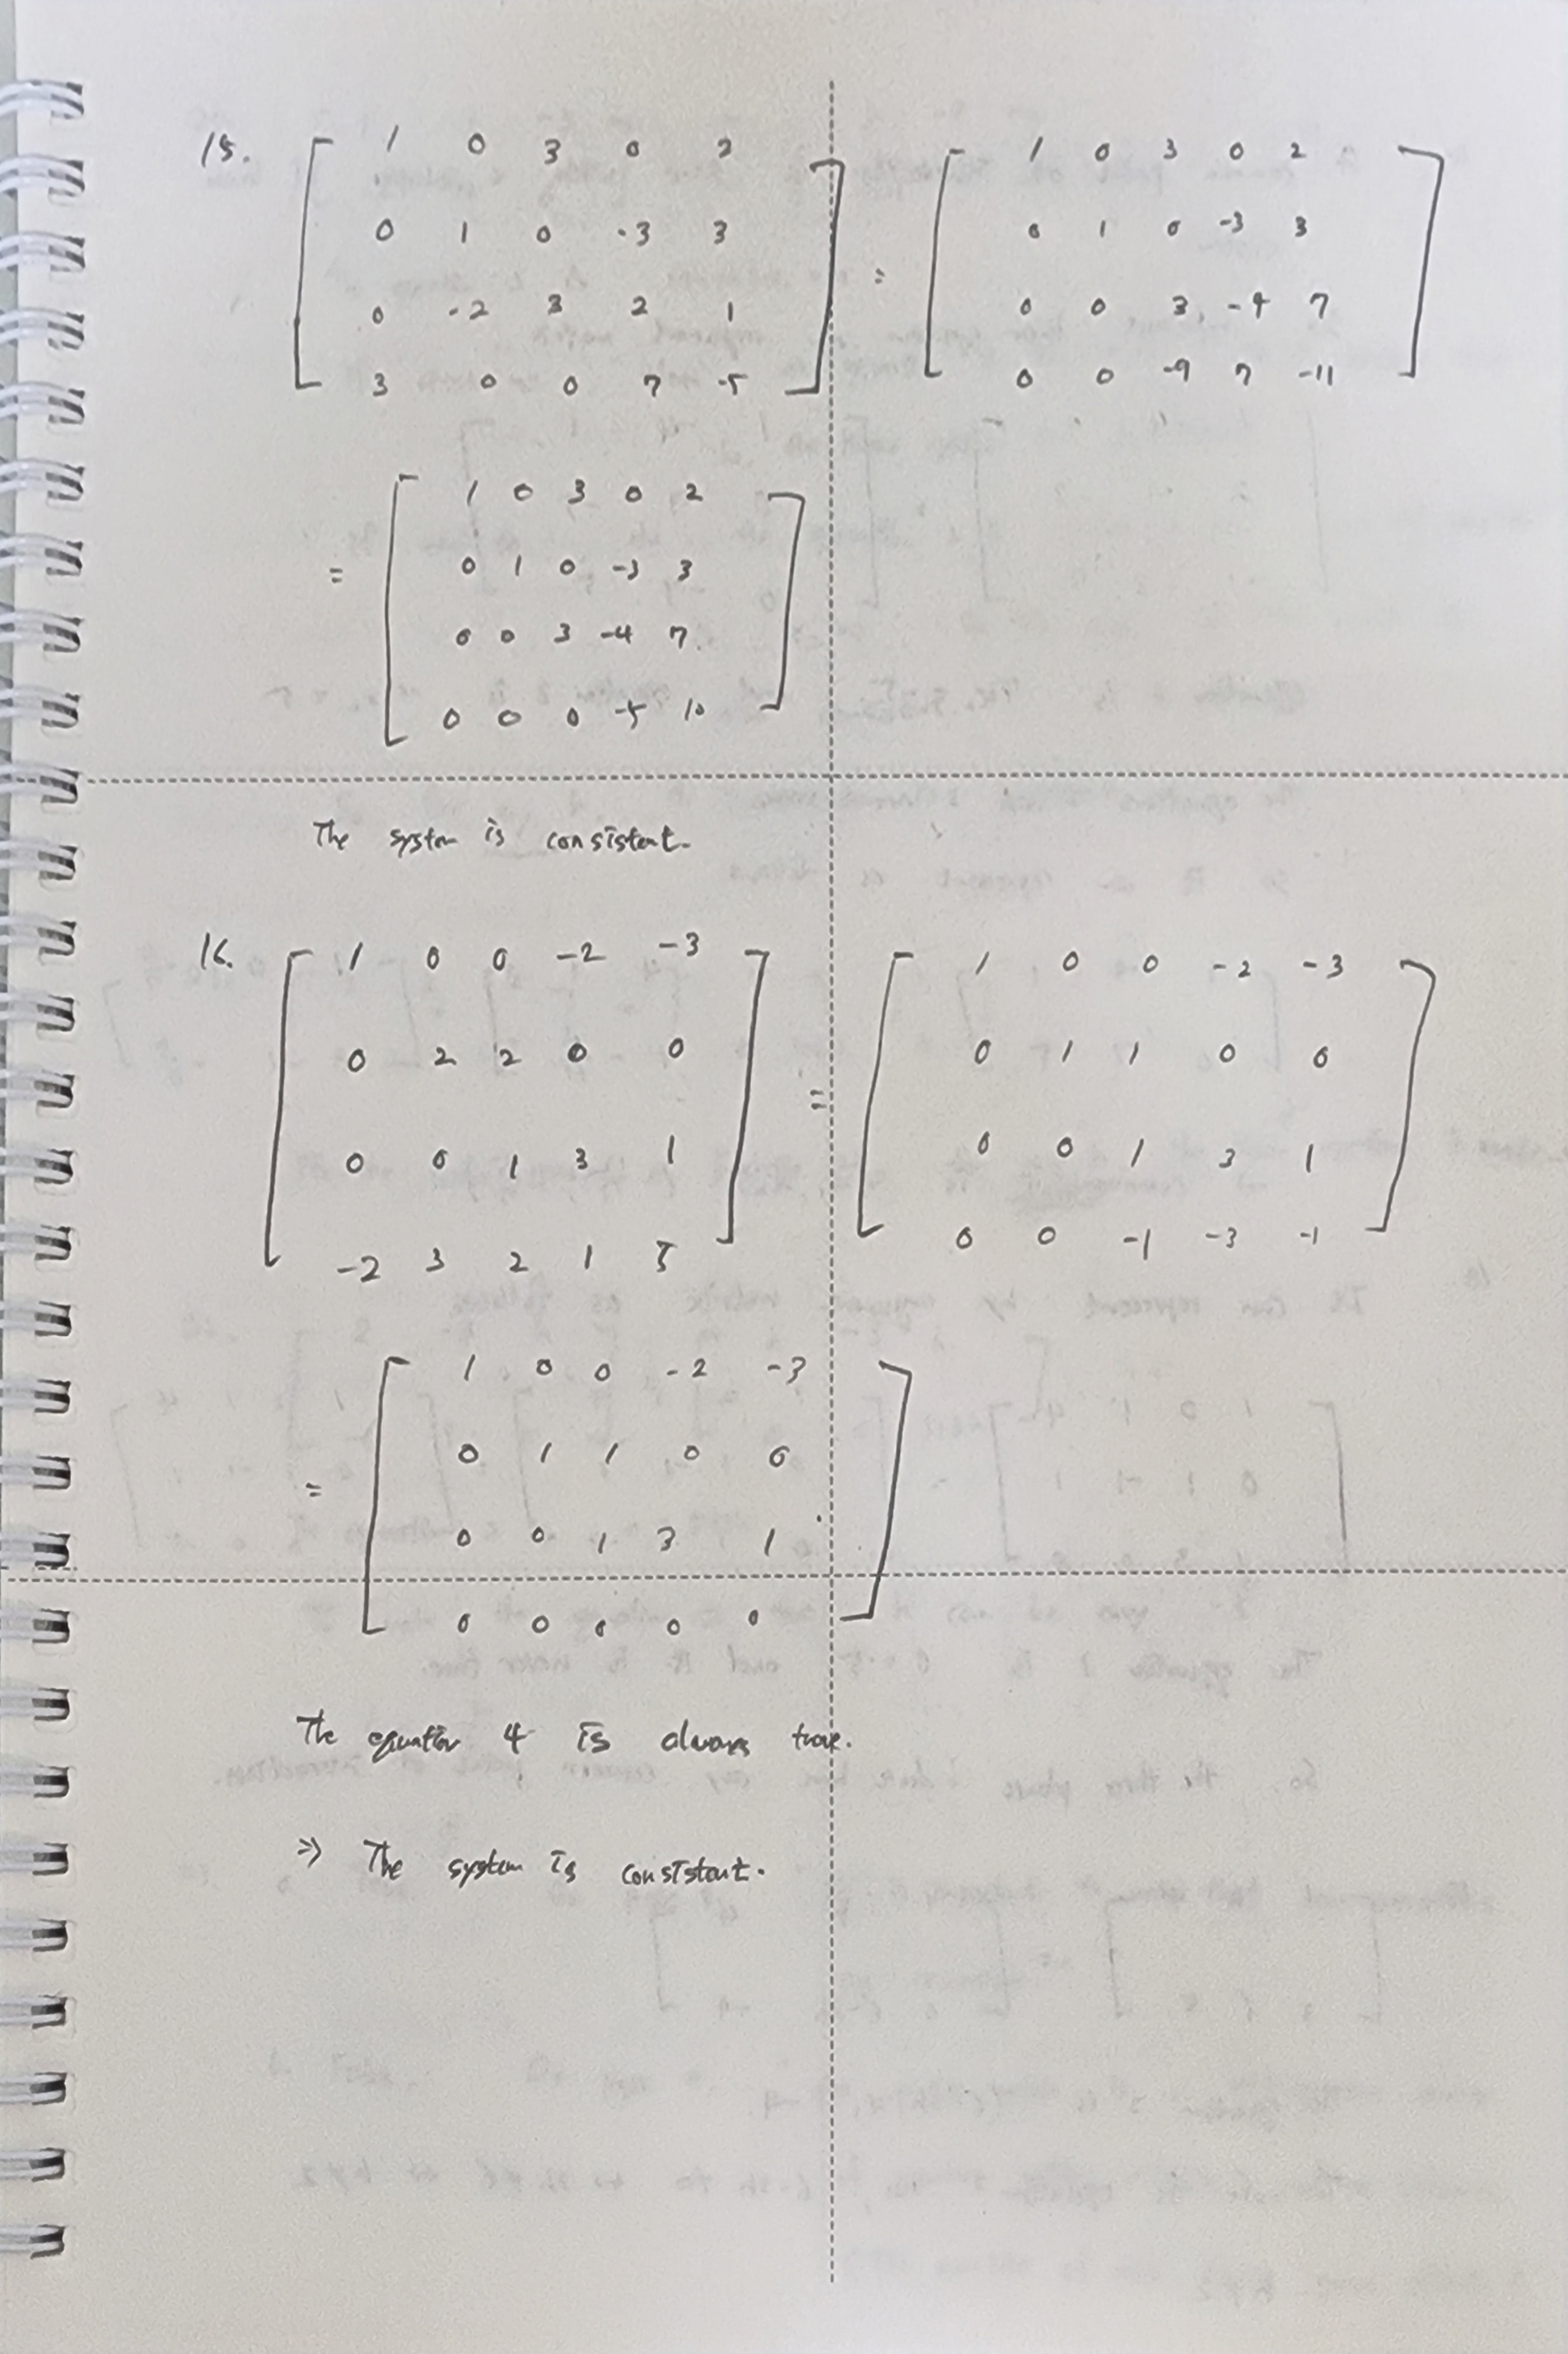 15. [ 1 0 3 0 2 ] = [ 1 0 3 0 2 ]
0 1 0 -3 3 0 1 0 -3 3
0 -2 3 2 1 0 0 3 -4 7
3 0 0 7 -5 0 0 -9 7 -11
= [ 1 0 3 0 2 ]
0 1 0 -3 3
0 0 3 -4 7
0 0 0 -5 10
The system is consistent.
16. [ 1 0 0 -2 -3 ] = [ 1 0 0 -2 -3 ]
0 2 2 0 0 0 1 1 0 0
0 0 1 3 1 0 0 1 3 1
-2 3 2 1 5 0 0 -1 -3 -1
= [ 1 0 0 -2 -3 ]
0 1 1 0 0
0 0 1 3 1
0 0 0 0 0
The equation 4 is always true.
⇒ The system is consistent.